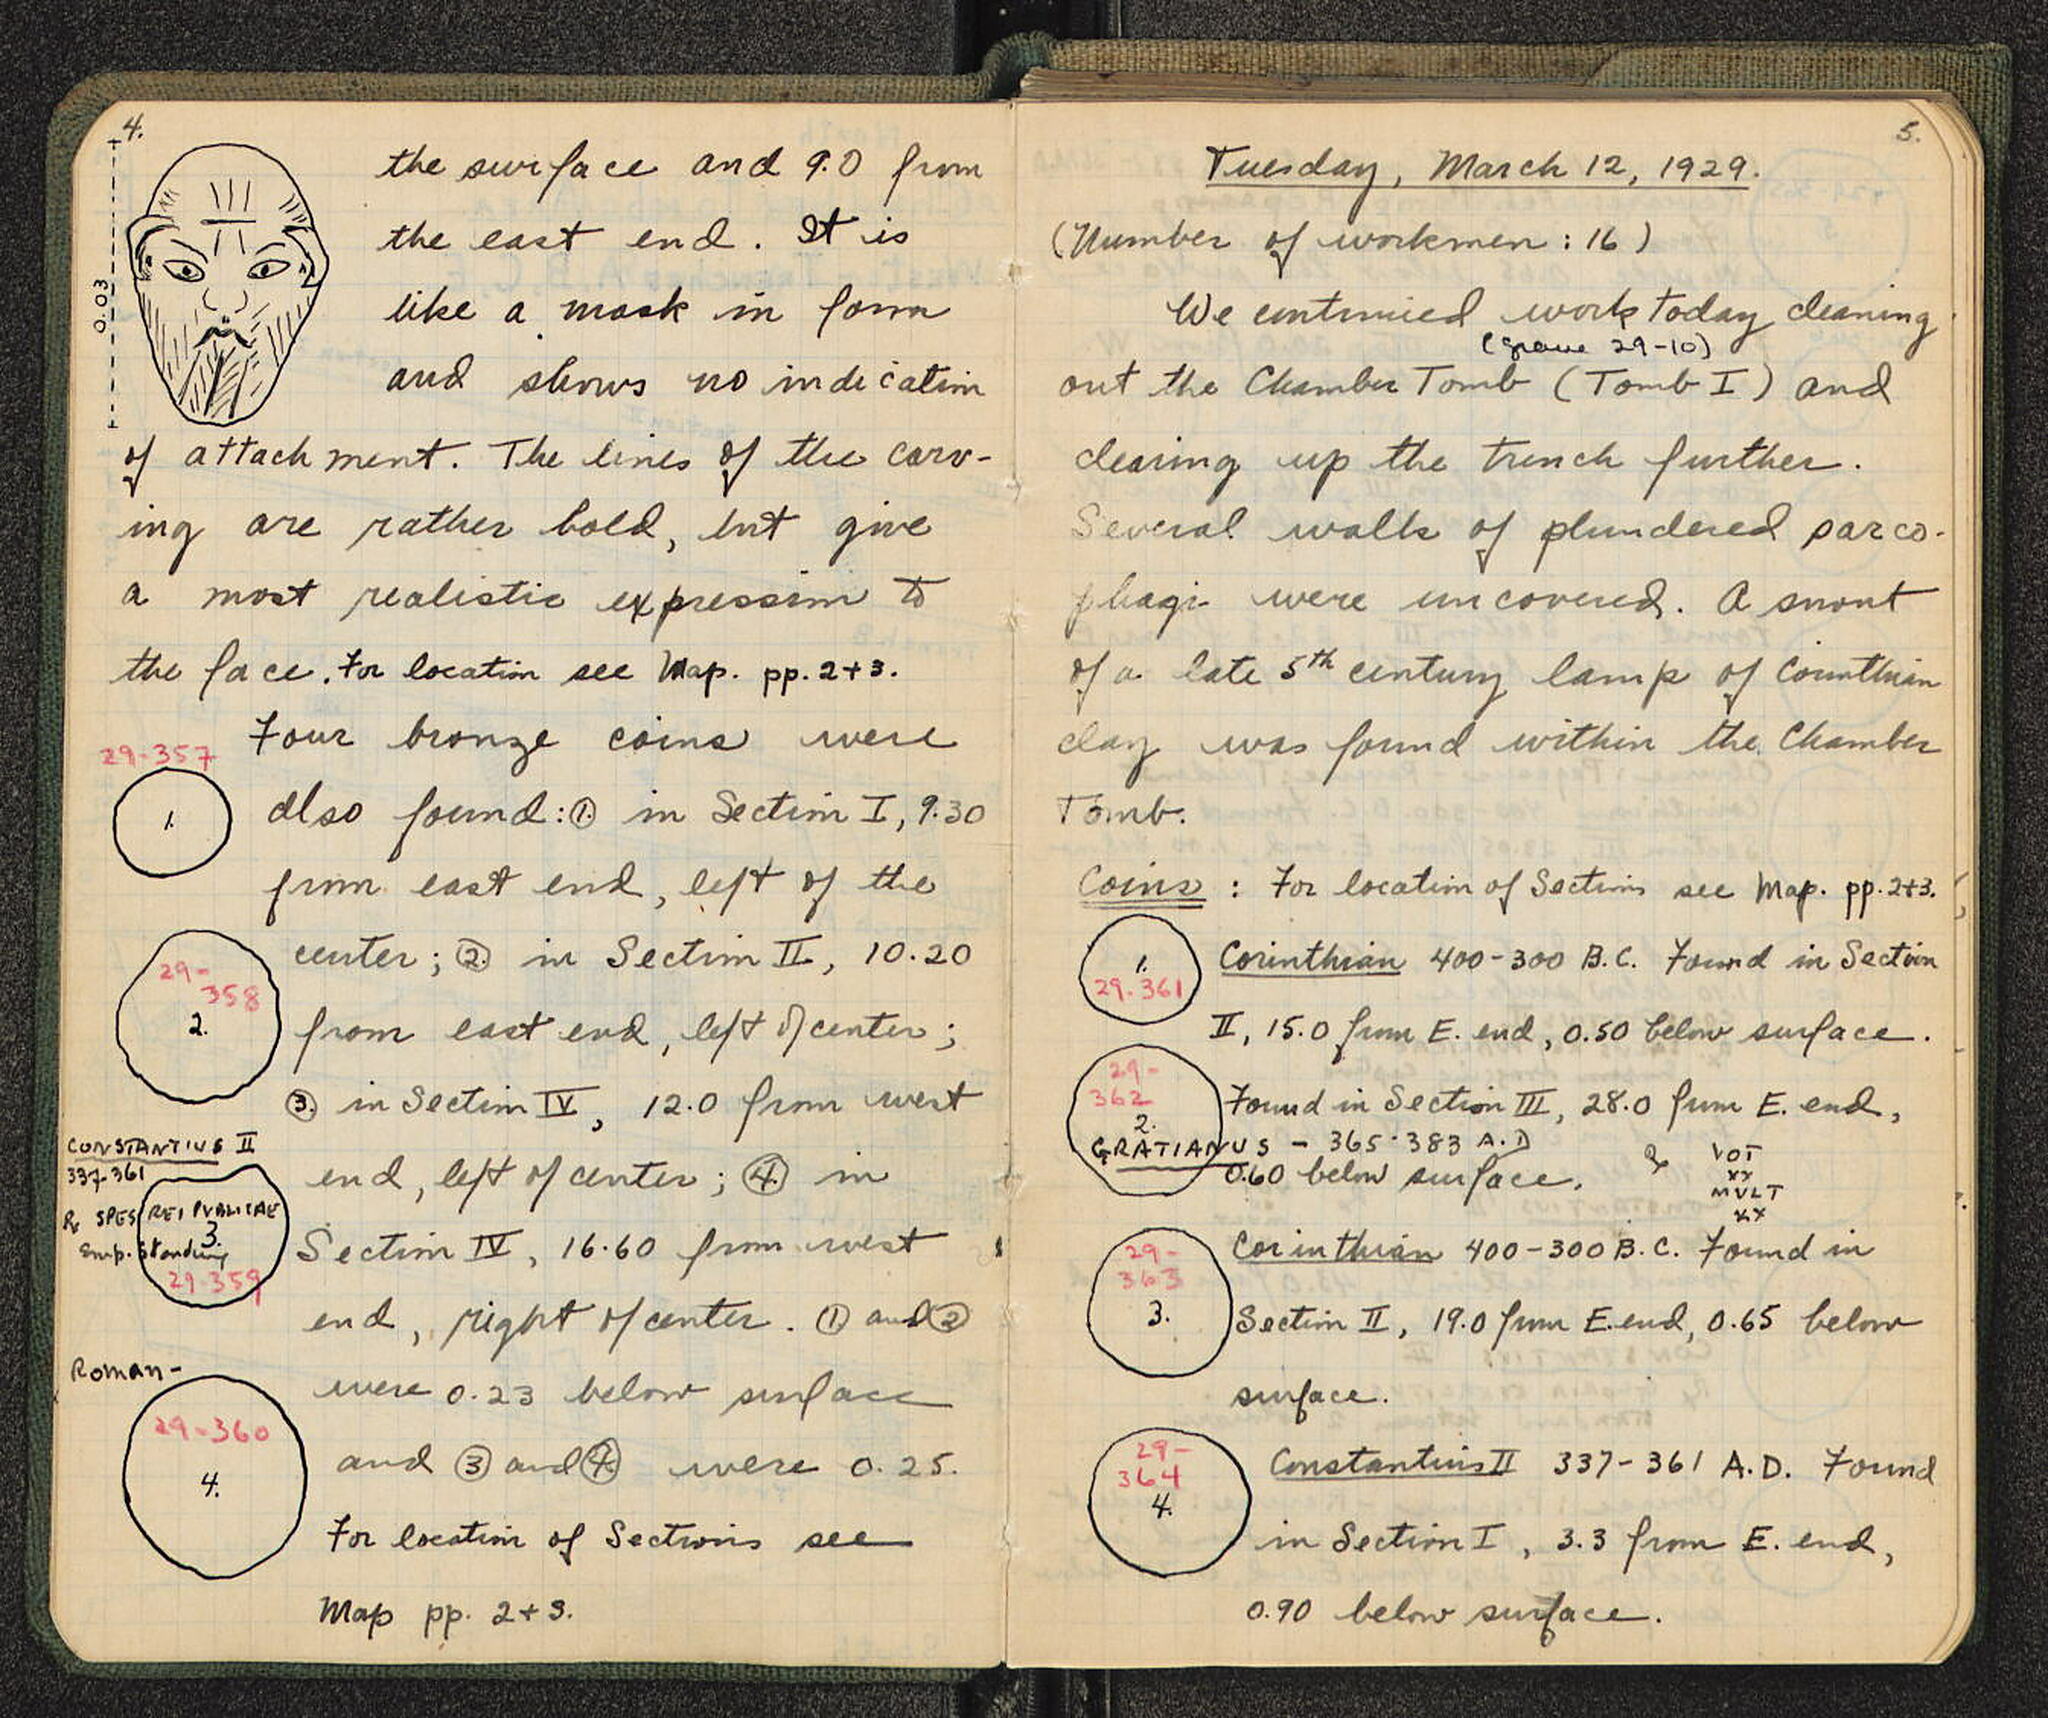 4.
0.03
the surface and 9.0 from
the east end. It is
like a mask in form
and shows no indication
of attachment. The lines of the carv-
ing are rather bold, but give
a most realistic expression to
the face. For location see Map. pp. 2+3.
29-357
Four bronze coins were
1.
also found: ① in Section I, 9.30
from east end, left of the
center; ② in Section II, 10.20
29-
358
2.
from east end, left of center;
③ in Section IV, 12.0 from west
CONSTANTIUS II
337-361
R SPES REI PUBLICAE
3.
Emp. Standing
29-359
end, left of center; ④ in
Section IV, 16.60 from west
end, right of center. ① and ②
Roman-
were 0.23 below surface
29-360
4.
and ③ and ④ were 0.25.
For location of Sections see
Map pp. 2+3.
5.
Tuesday, March 12, 1929.
(Number of workmen: 16)
We continued work today cleaning
(grave 29-10)
out the Chamber Tomb (Tomb I) and
clearing up the trench further.
Several walls of plundered sarco-
phagi were uncovered. A snout
of a late 5th century lamp of Corinthian
clay was found within the Chamber
Tomb.
Coins: For location of Sections see Map. pp. 2+3.
1.
29.361
Corinthian 400-300 B.C. Found in Section
II, 15.0 from E. end, 0.50 below surface.
29-
362
2.
Found in Section III, 28.0 from E. end,
GRATIANUS - 365-383 A.D
0.60 below surface.
R VOT
XX
MVLT
XX
29-
363
3.
Corinthian 400-300 B.C. Found in
Section II, 19.0 from E. end, 0.65 below
surface.
29-
364
4.
Constantius II 337-361 A.D. Found
in Section I, 3.3 from E. end,
0.90 below surface.